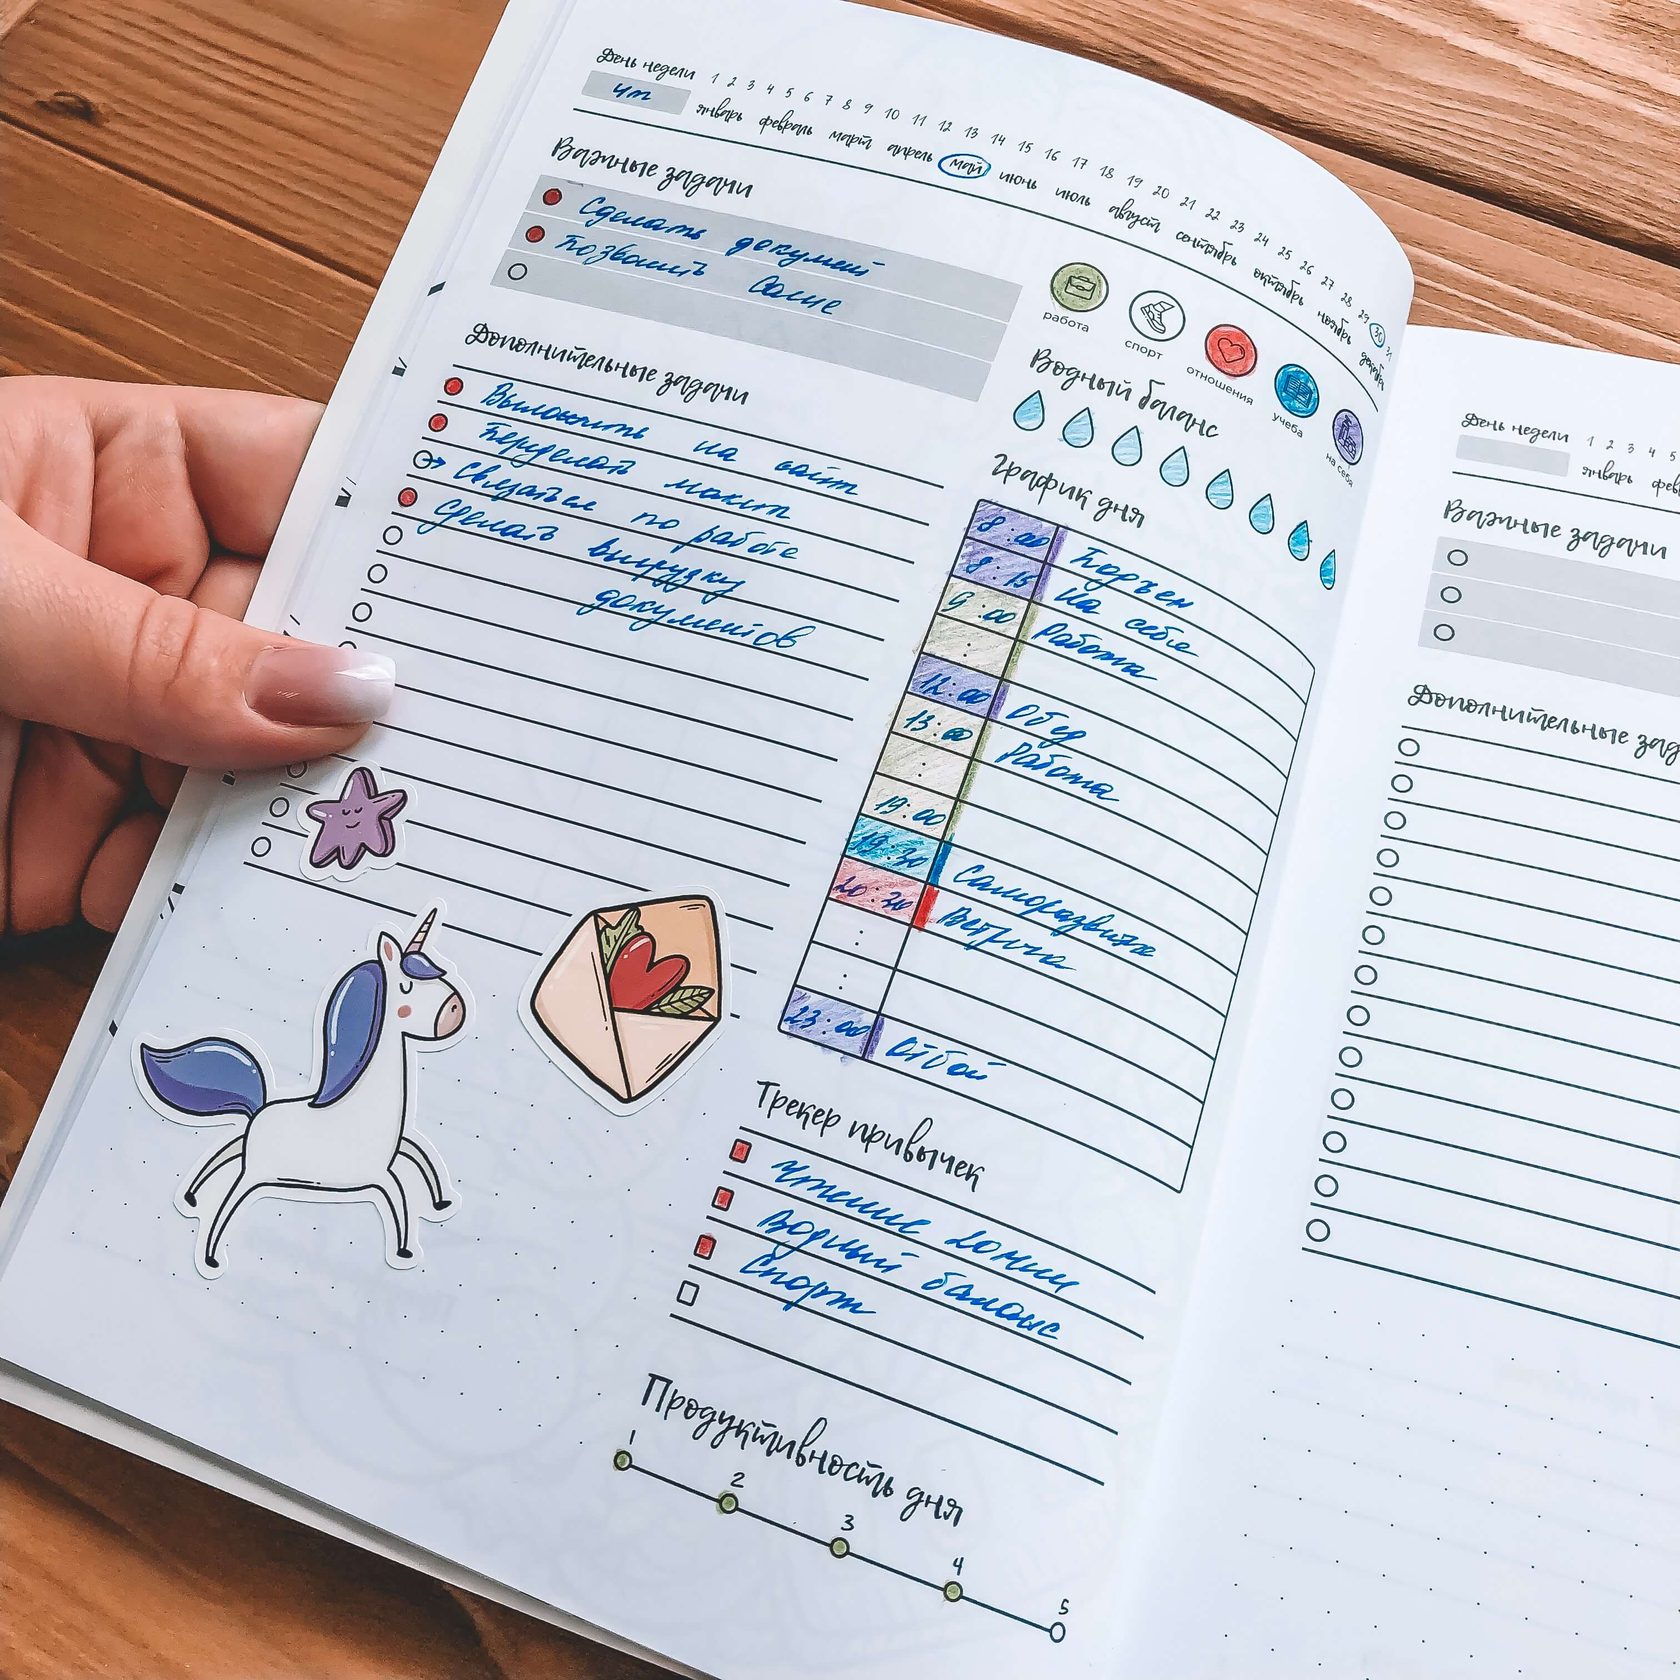 День недели 1 2 3 4 5 6 7 8 9 10 11 12 13 14 15 16 17 18 19 20 21 22 23 24 25 26 27 28 29 30 31
чт январь февраль март апрель май июнь июль август сентябрь октябрь ноябрь декабрь
Важные задачи
Сделать документ
Позвонить
Дополнительные задачи
Выложить на сайт
Переделать макет
Связаться по работе
Сделать выгрузку
документов
работа
спорт
отношения
учеба
на себя
Водный баланс
График дня
8:00 Подъем
8:15 На себя
9:00 Работа
:
12:00 Обед
13:00 Работа
:
19:00
19:30 Саморазвитие
20:20 Встреча
:
:
23:00 Отбой
Трекер привычек
Чтение 20 мин
Водный баланс
Спорт
Продуктивность дня
1 2 3 4 5
День недели 1 2 3 4 5
январь
Важные задачи
Дополнительные